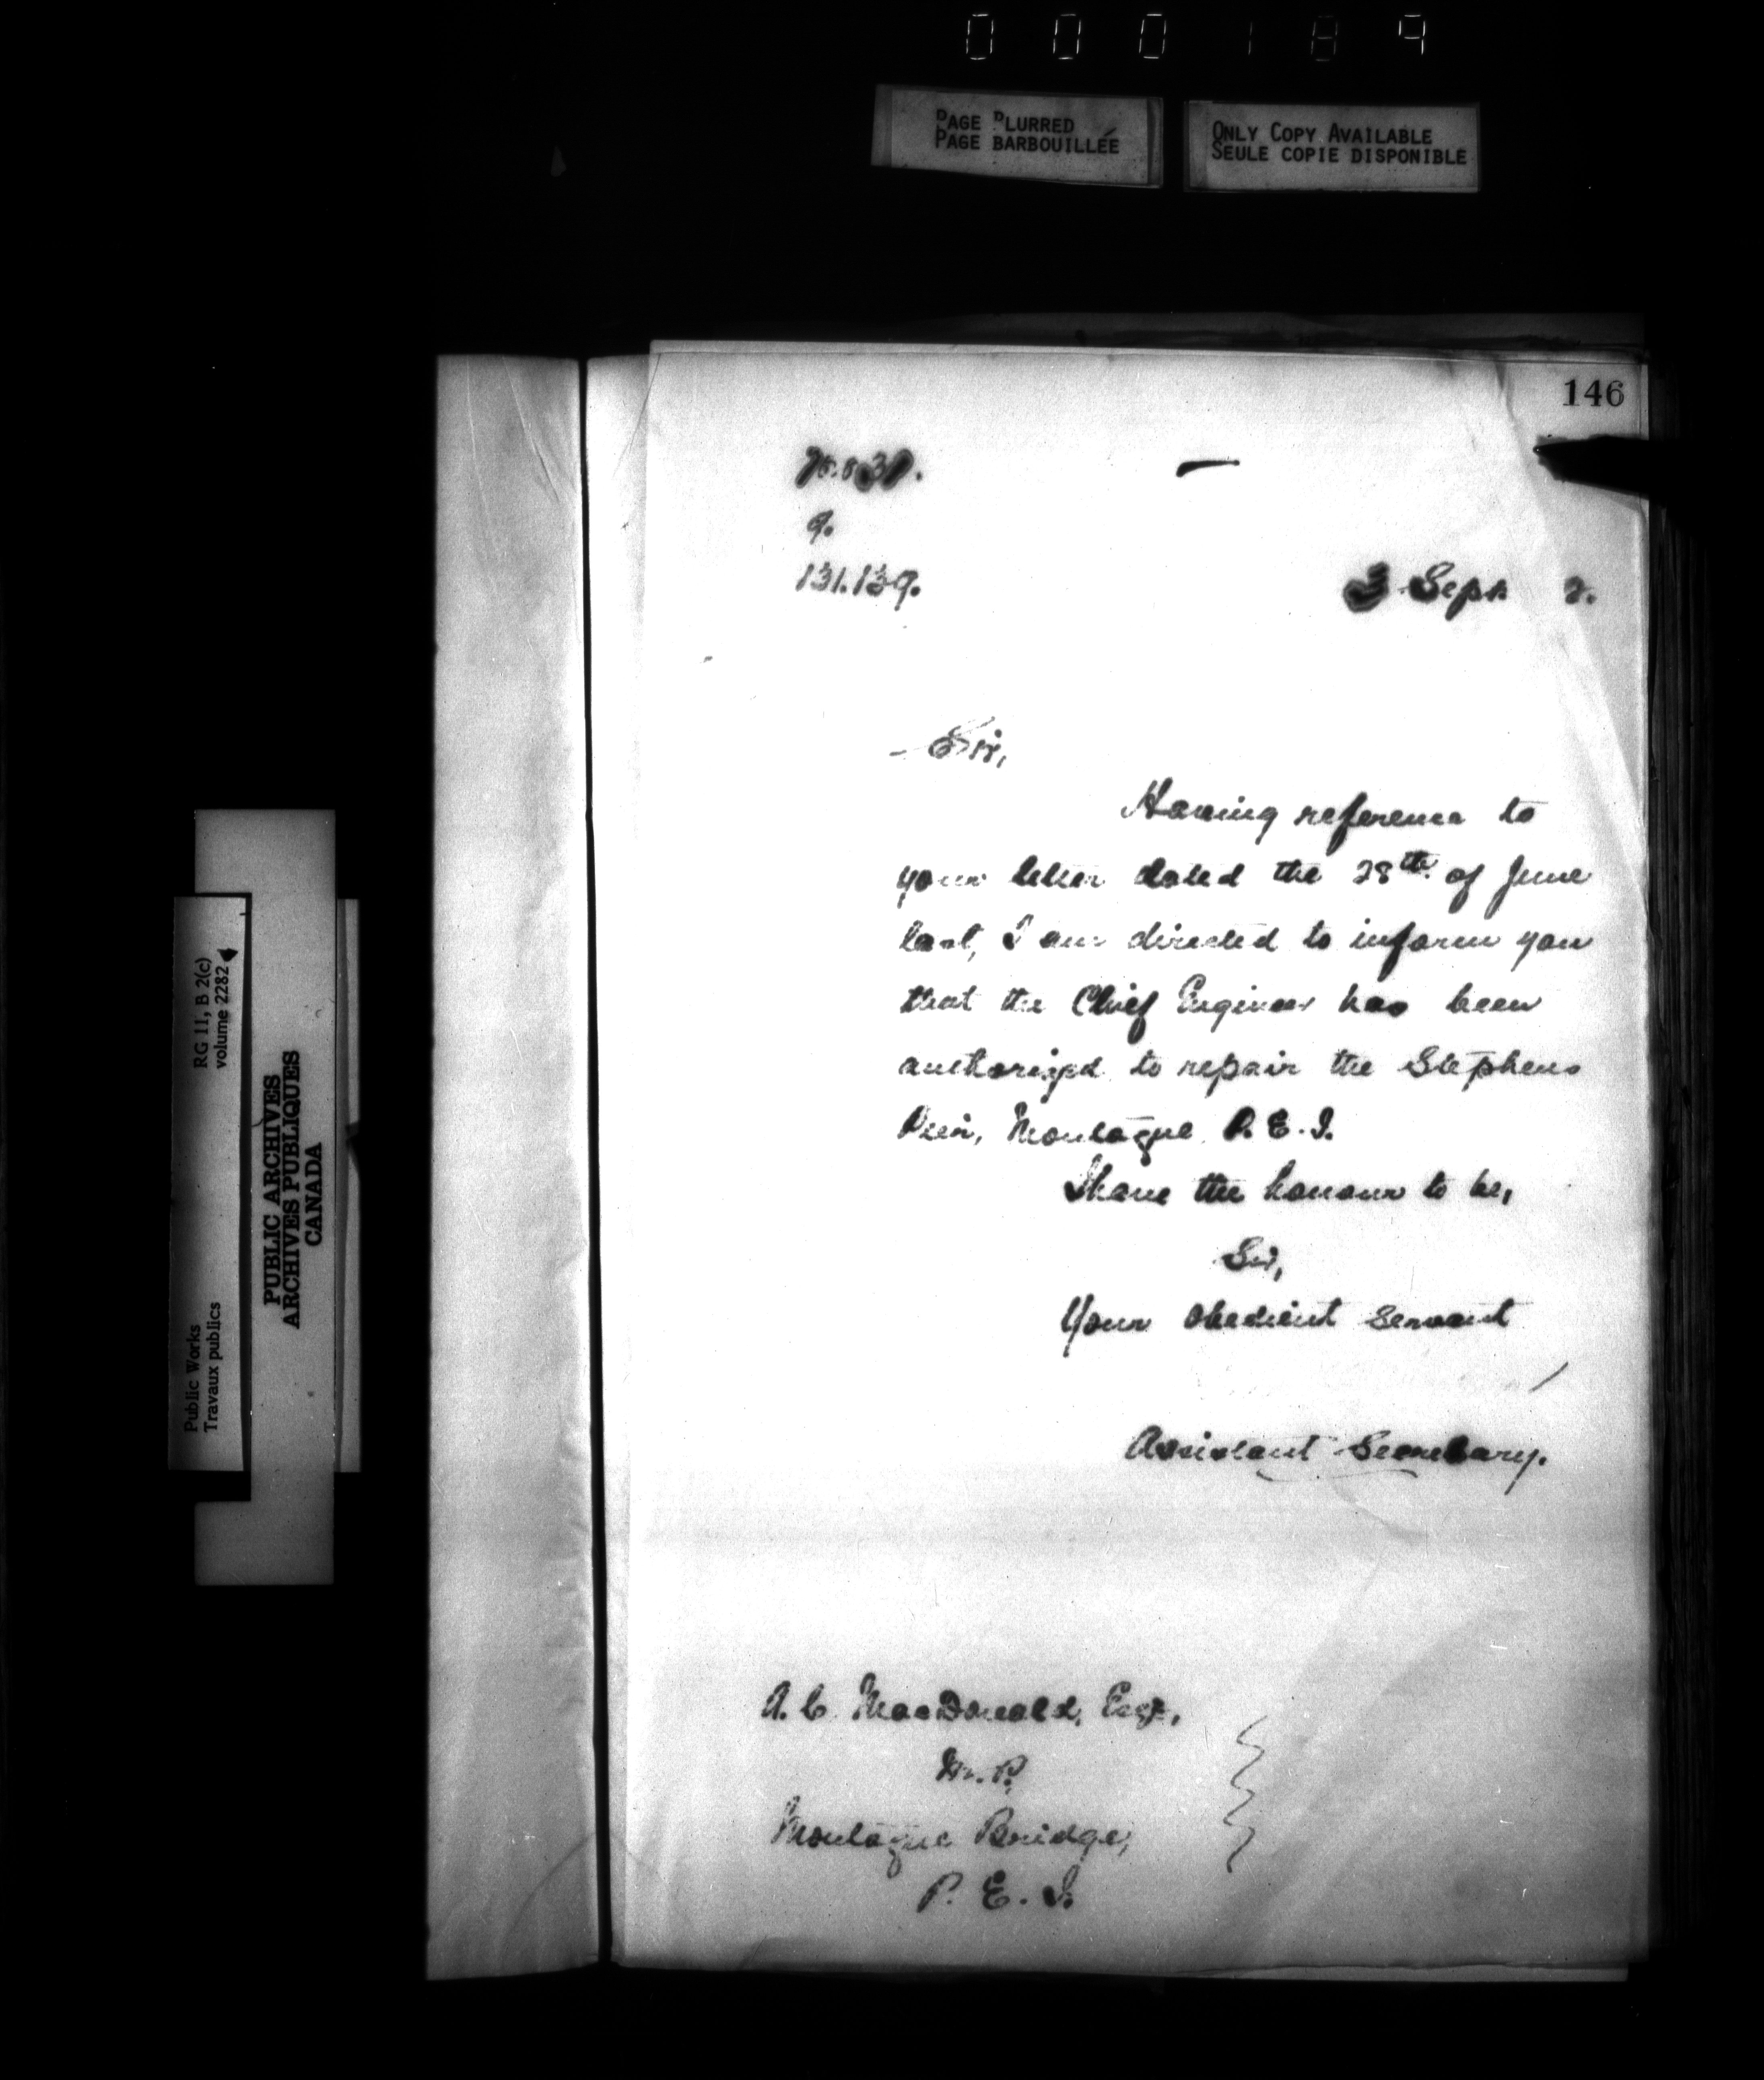 000189
PAGE BLURRED
PAGE BARBOUILLÉE
ONLY COPY AVAILABLE
SEULE COPIE DISPONIBLE
146
9.
131.139.
3 Sept 2.
Sir,
Having reference to
your letter dated the 28th of June
last, I am directed to inform you
that the Chief Engineer has been
authorized to repair the Stephens
Pier, Montague P. E. I.
I have the honour to be,
Sir,
Your obedient servant
Assistant Secretary.
A. C. MacDonald, Esq.,
M. P.
Montague Bridge,
P. E. I.
RG 11, B 2(c)
volume 2282
Public Works
Travaux publics
PUBLIC ARCHIVES
ARCHIVES PUBLIQUES
CANADA